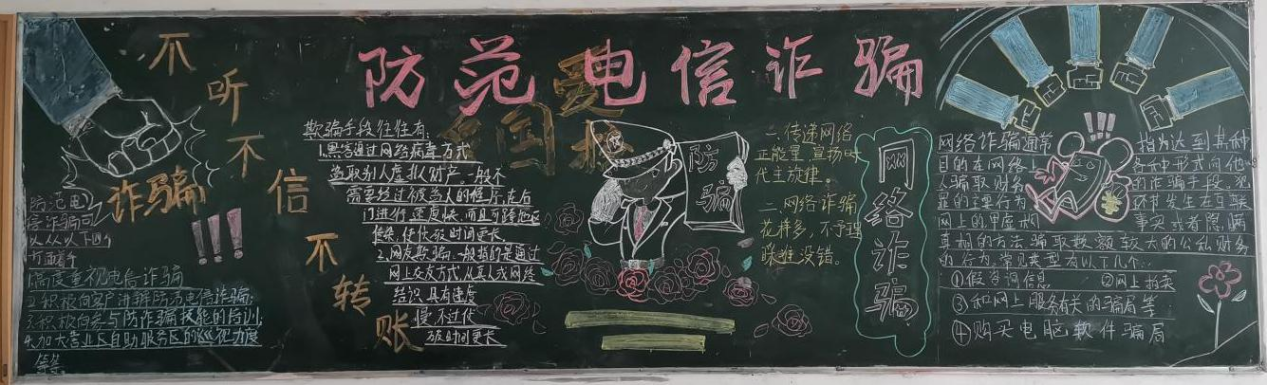 防范电信诈骗
不听不信不转账
诈骗!!!
防范电
信诈骗可
以从以下四个
方面着手
1.高度重视电信诈骗
2.积极向客户讲解防范电信诈骗;
3.积极向参与防诈骗技能的培训,
4.加大营业区自助服务区的巡视力度
等等。
欺骗手段往往有:
1.黑客通过网络病毒方式
盗取别人虚拟财产。一般不
需要经过被盗人的程序,在后
门进行,速度快,而且可跨地区
传染,使侦破时间更长
2.网友欺骗,一般指的是通过
网上交友方式从真人或网络
结识,具有速度
慢不过侦
破时间更长
防骗
一、传递网络
正能量,宣扬时
代主旋律。
二、网络诈骗
花样多,不予理
睬准没错。
网络诈骗
网络诈骗通常 指为达到某种
目的在网络上 以各种形式向他
人骗取财务 的诈骗手段。犯
罪的主要行为 环节发生在互联
网上的用虚构 事实或者隐瞒
真相的方法,骗取数额较大的公私财务
的行为,常见类型有以下几个:
①假咨询信息 ②网上拍卖
③和网上服务有关的骗局等
④购买电脑软件骗局